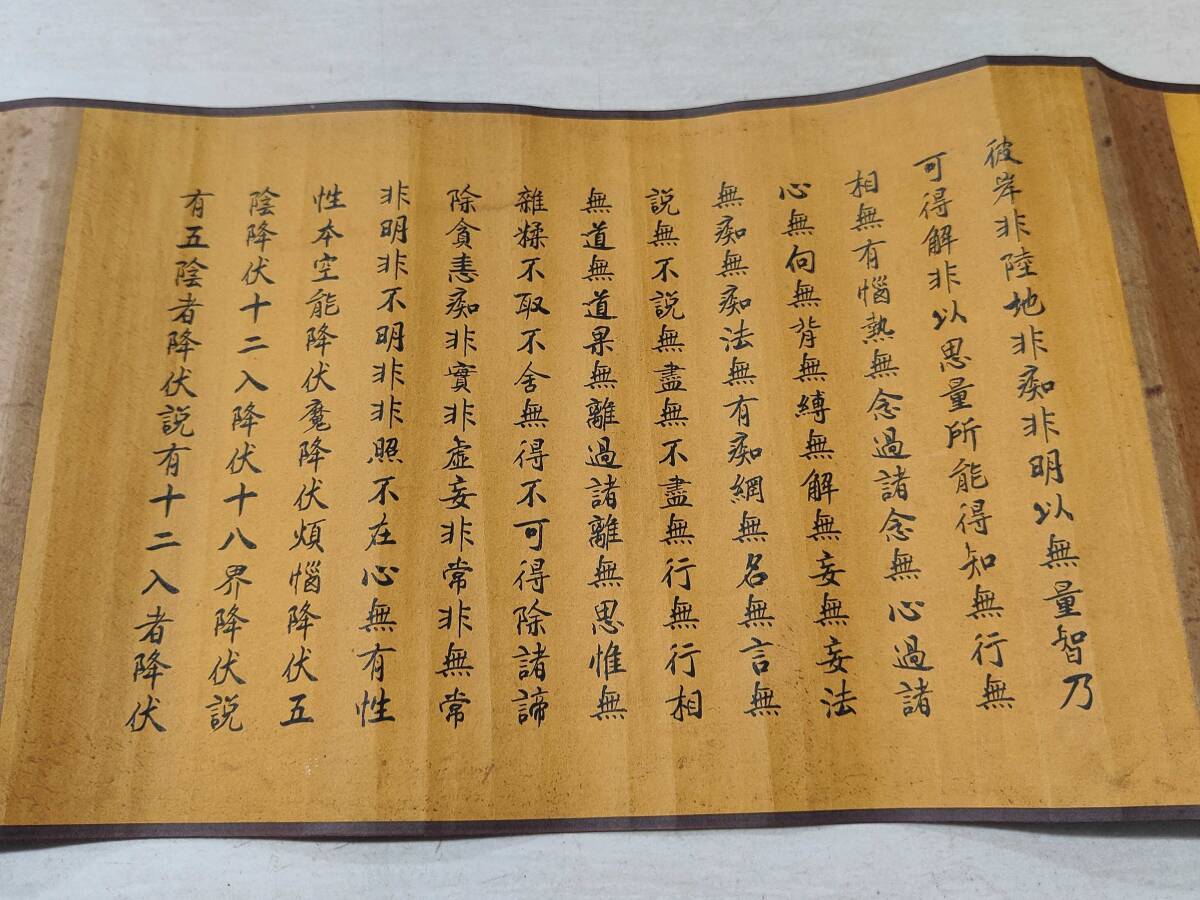 彼岸非陸地非痴非明以無量智乃
可得解非以思量所能得知無行無
相無有惱熱無念過諸念無心過諸
心無向無背無縛無解無妄無妄法
無痴無痴法無有痴網無名無言無
説無不説無盡無不盡無行無行相
無道無道果無離過諸離無思惟無
雜糅不取不舍無得不可得除諸諦
除貪恚痴非實非虛妄非常非無常
非明非不明非非照不在心無有性
性本空能降伏魔降伏煩惱降伏五
陰降伏十二入降伏十八界降伏説
有五陰者降伏説有十二入者降伏